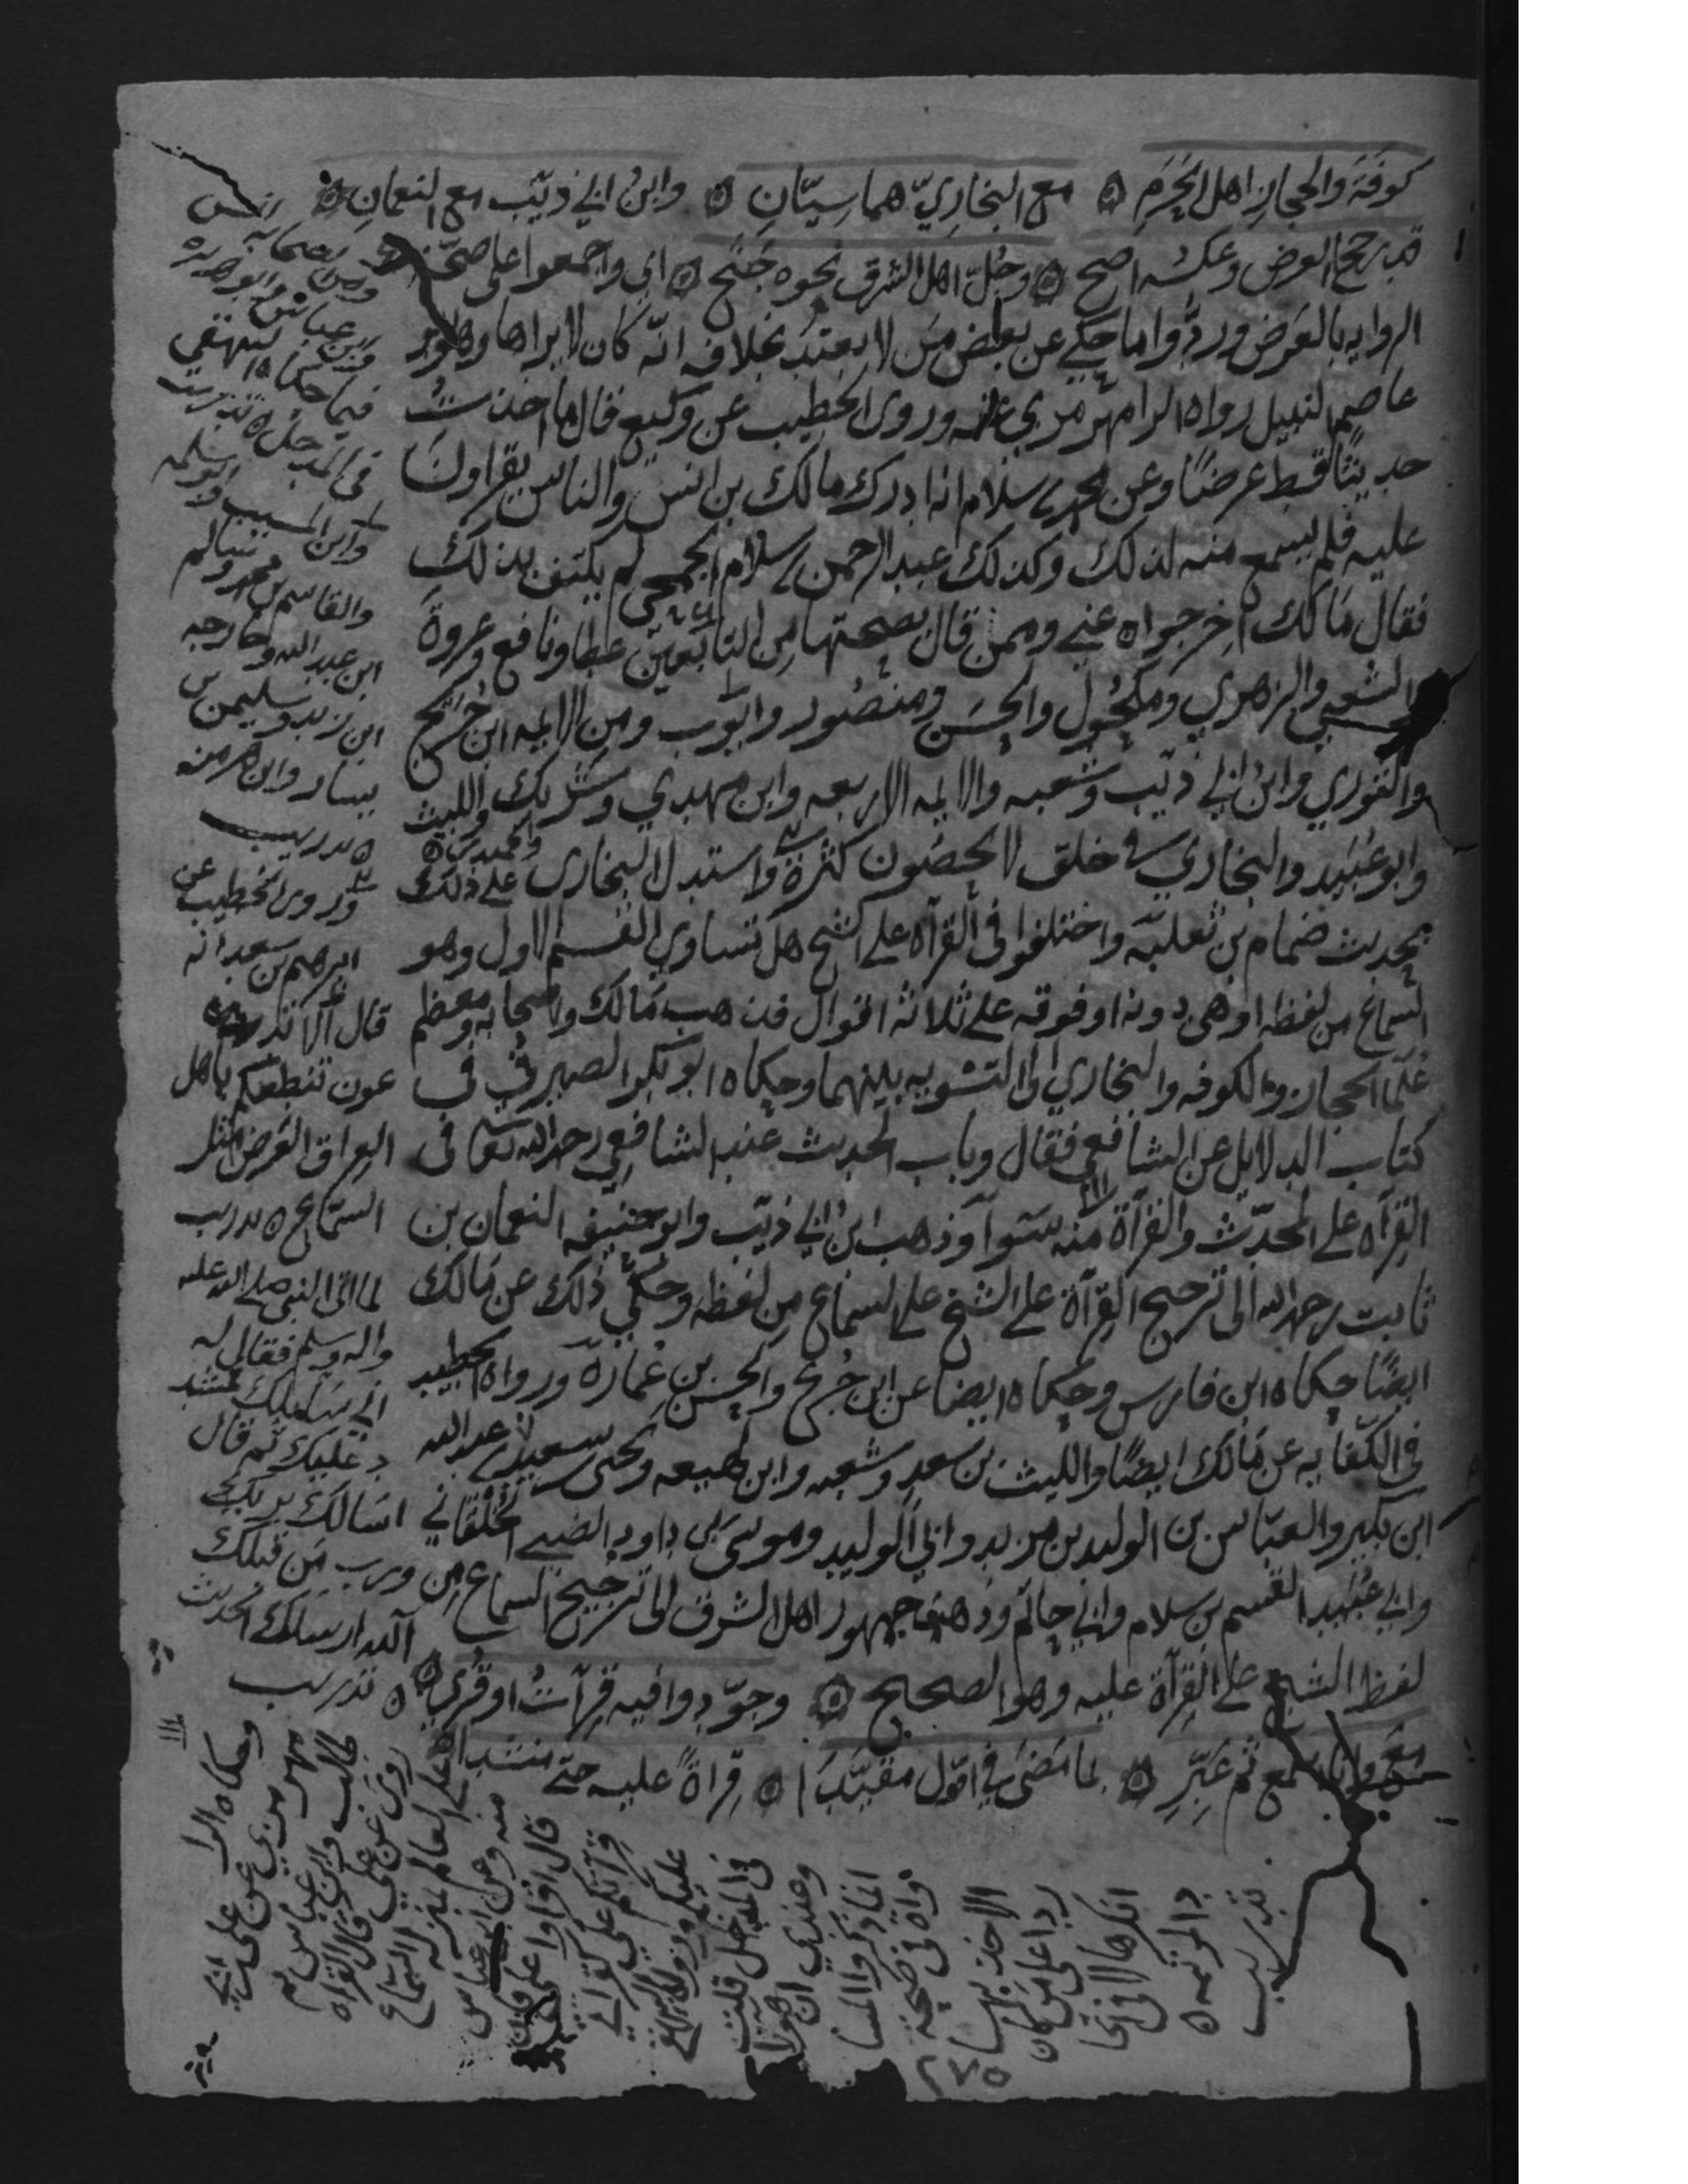 كوفة والحجاز اهل الحرم ۞ مع البخاريّ هما سيّان ۞ وابن ابي ذيّب مع النعمان ۞
قد رجح العرض وعكسه اصح ۞ وجلّ اهل الشرق نحوه جنح ۞ اي واجمعوا على صحّة
الروايه بالعرض وردّوا ما حكي عن بعض من لا يعتد بخلافه انّه كان لا يراها وهو ابو
عاصم النبيل رواه الرامهرمزي عنه وروى الخطيب عن وكيع قال ما اخذت
حديثا قط عرضا وعن محمد بن سلام انه ادرك مالك بن انس والناس يقراون
عليه فلم يسمع منه لذلك وكذلك عبد الرحمن بن سلام الجمحي لم يكتف بذلك
فقال مالك اخرجوه عني وممن قال بصحتها من التابعين عطا ونافع وعروة
والشعبي والزهري ومكحول والحسن ومنصور وايّوب ومن الايمه ابن جريج
والثوري وابن ابي ذيّب وشعبه والايمه الاربعه وابن مهدي وشريك والليث
وابو عبيد والبخاري في خلق لا يحصون كثرة واستدل البخاري على ذلك
بحديث ضمام بن ثعلبة واختلفوا في القرآه على الشيخ هل تساوي القسم الاول وهو
السماع من لفظه او هي دونه او فوقه على ثلاثه اقوال فذهب مالك واصحابه ومعظم
علما الحجاز والكوفه والبخاري الى التسويه بينهما وحكاه ابو بكر الصيرفي في
كتاب الدلايل عن الشافعي فقال وباب الحديث عند الشافعي رحمه الله تعالى في
القرآه على المحدّث والقرآة منه سوآ وذهب ابن ابي ذيّب وابو حنيفه النعمان بن
ثابت رحمه الله الى ترجيح القرآة على الشيخ على السماع من لفظه وحكي ذلك عن مالك
ايضًا حكاه ابن فارس وحكاه ايضا عن ابن جريج والحسن بن عمارة ورواه الخطيب
في الكفايه عن مالك ايضًا والليث بن سعد وشعبه وابن لهيعه ويحيى بن سعيد ويحيى بن عبد الله
ابن بكير والعبّاس بن الوليد بن مزيد وابي الوليد وموسى بن داود الضبي الخلقاني
وابي عبيد القسم بن سلام وابي حاتم وذهب جمهور اهل الشرق الى ترجيح السماع من
لفظ الشيخ على القرآة عليه وهو الصحيح ۞ وجوّدوا فيه قرآت او قري ۞
مع وانا اسمع ثم عبّر ۞ بما مضى في اوّل مقيّدا ۞ قرآة عليه حتى منشدا
ومن الصحابه انس
وابن عباس وابو هريره
فيما حكاه البيهقي
في المدخل ه تدريب
وابن المسيب وابو سلمه
والقاسم بن محمد وسالم
ابن عبد الله وخارجه
ابن زيد وسليمن بن
يسار وابن هرمز
ه تدريب
وروى الخطيب عن
ابرهيم بن سعد انه
قال الا تدعون
تنطعكم يا اهل
العراق العرض مثل
السماع ه تدريب
لما اتى النبي صلى الله عليه
واله وسلم فقال له
اني سايلك فمشدد
عليك ثم قال
اسالك بربك
ورب من قبلك
آلله ارسلك الحديث
ه تدريب
وحكاه الرا
مهرمزي عن علي بن ابي
طالب وابن عباس ثم
روى عن علي قال القراه
على العالم بمنزله السماع
منه وعن ابن عباس
قال اقراوا علي فان
قرآتكم علي كقرآتي
عليكم رواه البيهقي
في المدخل قلت
وعندي ان هولا
انما ذكروا المسا
واة في صحة
الاخذ بها
ردا على من كان
انكرها لا في اتحا
د المرتبه ه
تدريب
٢٧٥